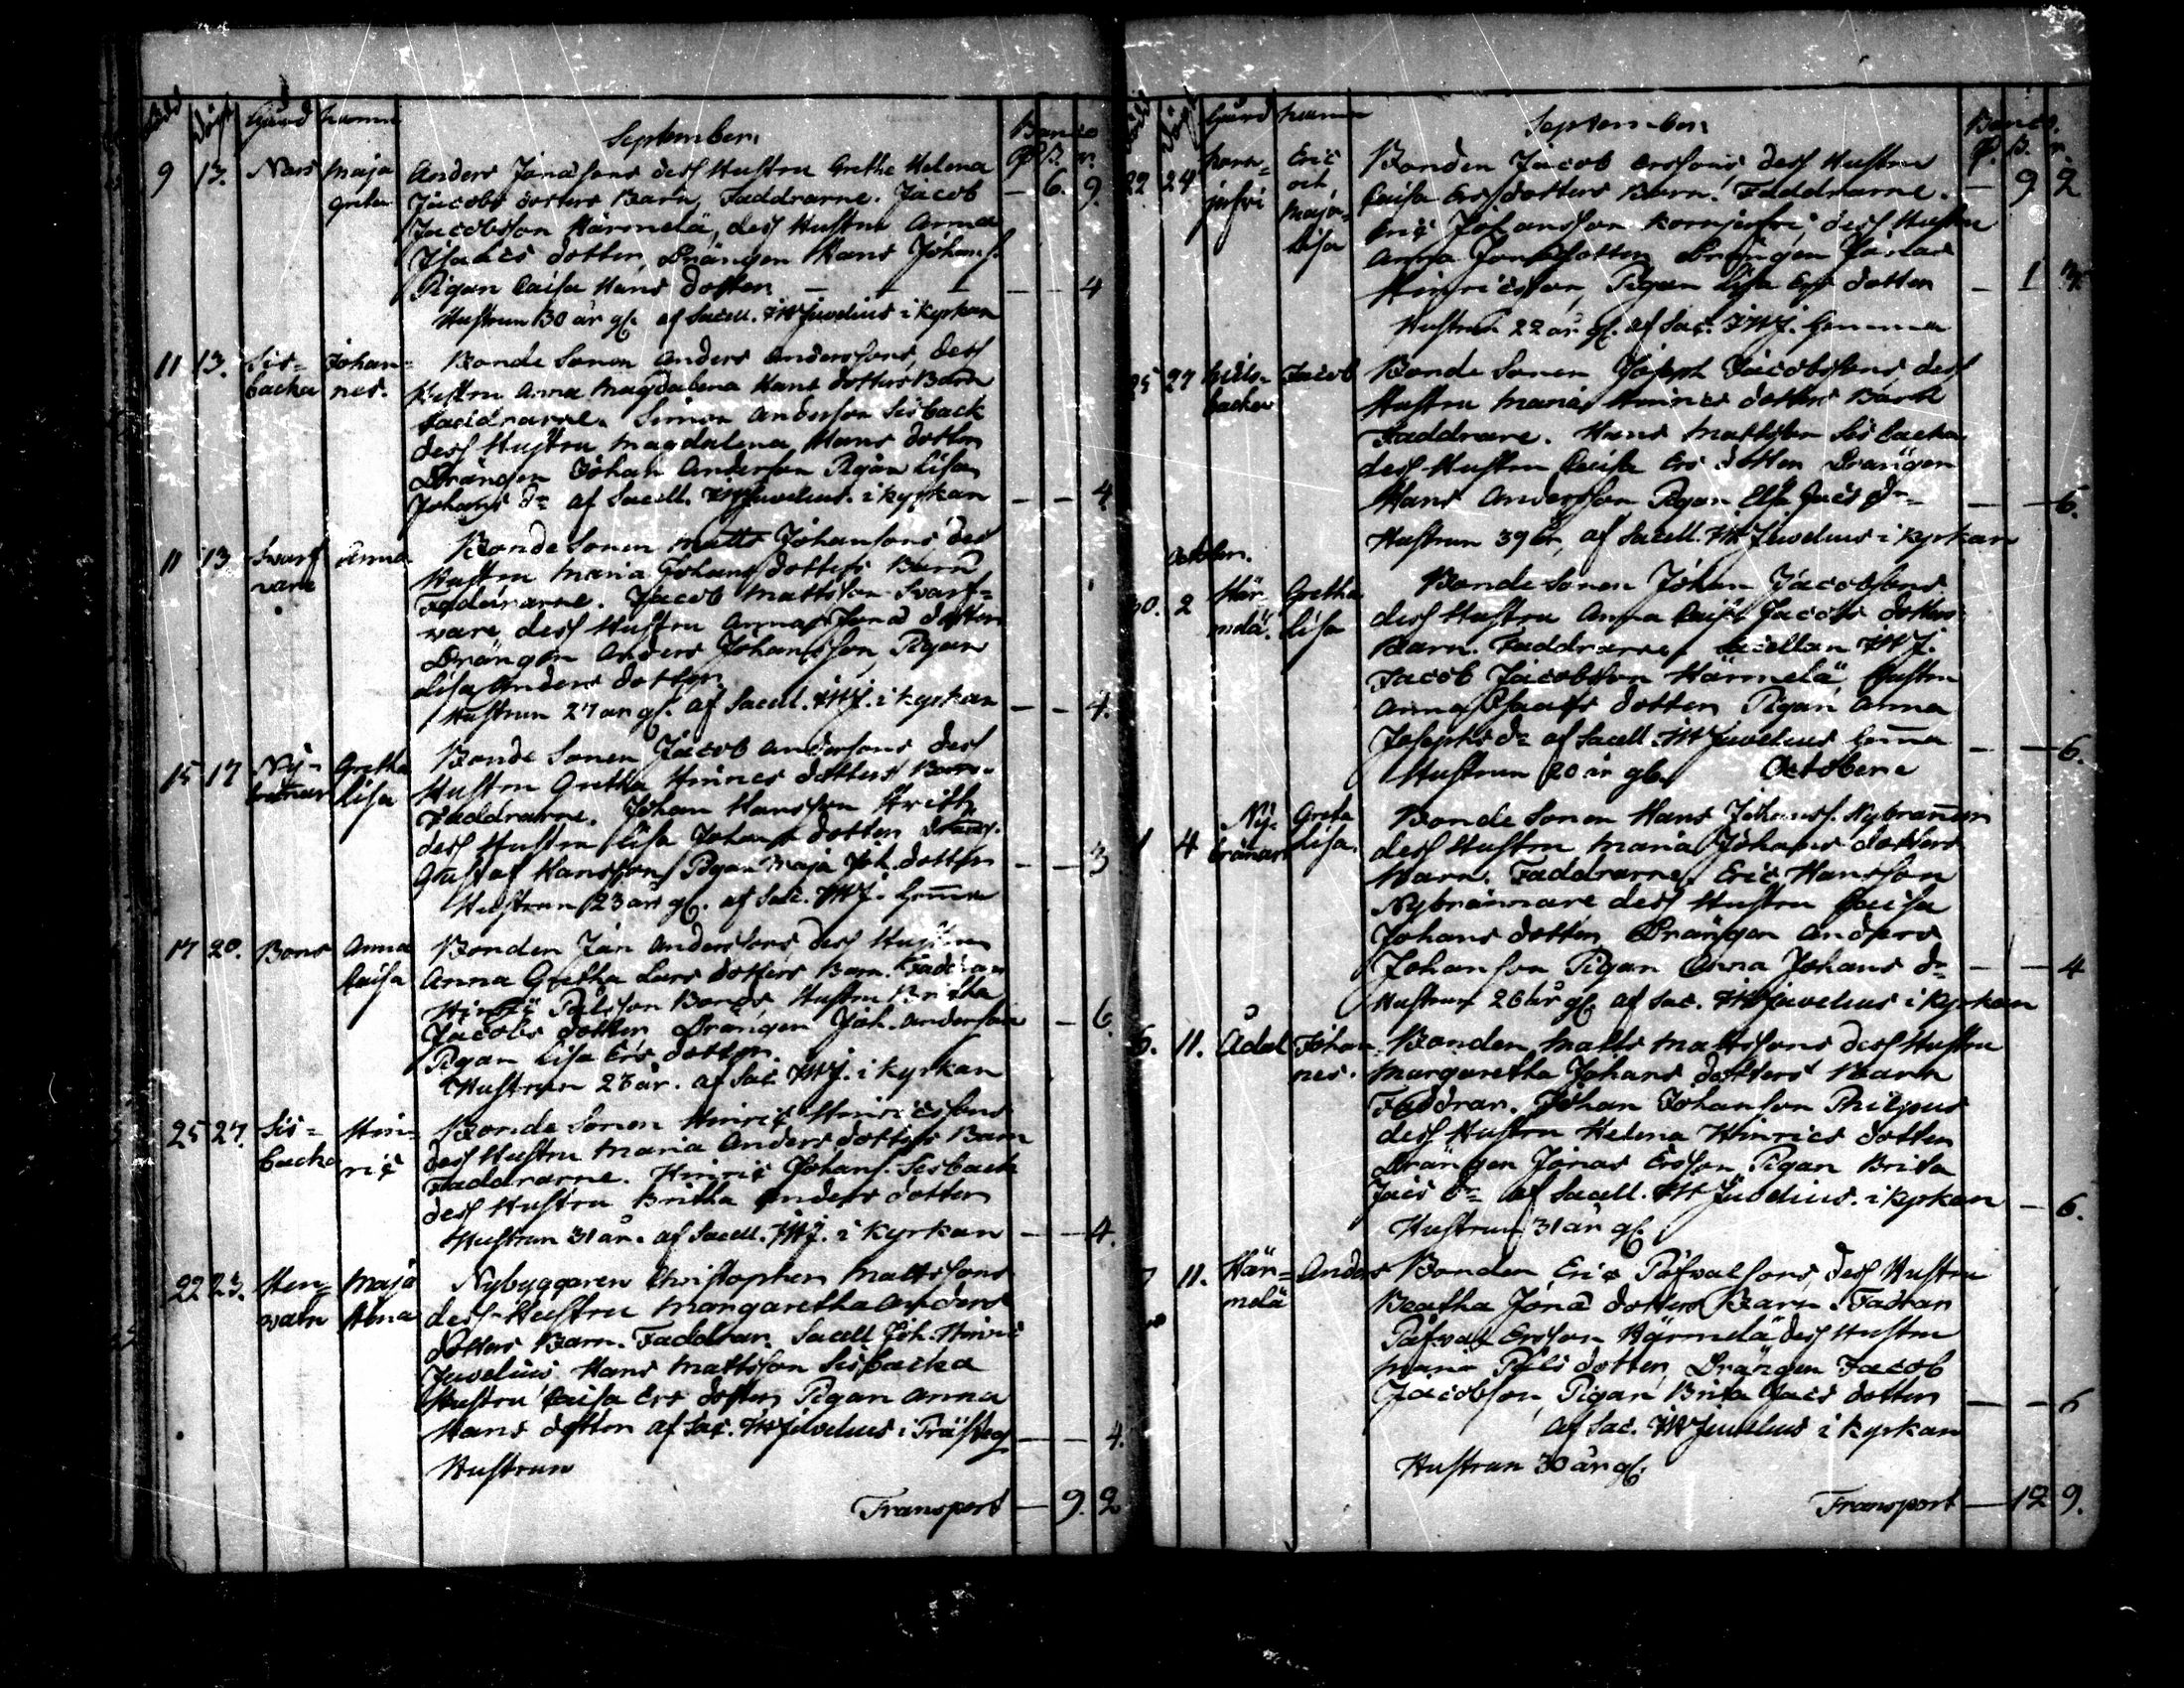 Född Döpt Gård namn September. Banco
R. S. r.
9 13. Nars Maja Greta Anders Jonasons dess Hustru Grethe Helena
Jacobs dotters Barn, Faddrarne. Jacob — 6. 9.
Jacobsson Härmelä, dess Hustru Anna
Isaacs dotter, Drängen Hans Johans.
Pigan Caisa Hans dotter — — — — — 4
Hustrun 30 år gl. af Sacell. JHJuvelius i Kyrkan
11 13. Sis= Johan= Bonde Sonen Anders Anderssons, dess
backa nes. Hustru Anna Magdalena Hans dotters Barn
Faddrarne. Simon Andersson Sisback
dess Hustru Magdalena Hans dotter
Drängen Johan Anderson Pigan Lisa
Johans dr af Sacell. JHJuvelius. i Kyrkan — — 4
11 13 Svart Anna Bonde Sonen Matts Johansons dess
vare Hustru Maria Johans dotters Barn
Faddrarne. Jacob Mattsson Svart=
vare, dess Hustru Anna Jona dotter
Drängen Anders Johansson, Pigan
Lisa Anders dotter.
Hustrun 27 år gl. af Sacell. JHJ. i Kyrkan — — 4.
15 17 Ny= Gretha Bonde Sonen Jacob Andersons dess
Lisa Hustru Gretha Hinrics dotters Barn.
Faddrarne. Johan Hansson
dess Hustru Lisa Johans dotter Dräng.
Gustaf Hansson Pigan Maja Joh. dotter — — 3
Hustrun 23 år gl. af Sac. JHJ. hemma
17 20. Bons Anna Bonden Jan Anderssons, dess Hustru
Caisa Anna Gretha Lars dotters Barn. Faddrar
Påhlsson Bonds, Hustru Britha
Jacobs dotter Drängen Joh. Anderson — 6.
Pigan Lisa Ers dotter.
Hustrun 23 år. af Sac JHJ. i Kyrkan
25 27. Sis= Hin= Bonde Sonen Hinric Hinricssons
backa ric dess Hustru Maria Anders dotters Barn
Faddrarne. Hinric Johans. Sisback
dess Hustru Britha Anders dotter
Hustrun 31 år. af Sacell. JHJ. i Kyrkan — — 4.
22 23. Maja Nybyggaren Christopher Mattssons
dess Hustru Margaretha Anders
dotters Barn. Faddrar. Sacell Joh. Hinric
Juvelius, Hans Mattsson Sisbacka
Hustru Caisa Ers dotter, Pigan Anna
Hans dotter af Sac. JHJuvelius i Prästeg — — 4.
Hustrun
Transport — 9. 2
Gård namn September Banco.
R. S. r.
22 24 Eric Bonden Jacob Erssons dess Hustru
och Caisa Ersdotters Barn. Faddrarne. — 9 2
Maja= Eric Johansson dess Hustru
Lisa Anna Jons dotter, Drängen Jonas
Hinricsson, Pigan Lisa Ers dotter — 1
Hustrun 22 år gl. af Sac. JHJ. hemma
25 27 Jacob Bonde Sonen Joseph Jacobssons dess
backa Hustru Maria Hinrics dotters Barn
Faddrare. Hans Mattsson Sisbacka
dess Hustru Caisa Ers dotter Drängen
Hans Andersson Pigan Jacs dr — — 6.
Hustrun 39 år, af Sacell. JHJuvelius i Kyrkan
October.
30. 2 Här Gretha Bonde Sonen Johan Jacobssons
melä. Lisa dess Hustru Anna Caisa Jacobs dotters
Barn. Faddrarne. Sacellan JHJ.
Jacob Jacobsson Härmelä, Hustru
Anna Isaacs dotter Pigan Anna
Josephs dr af Sacell. JHJuvelius hemma — — 6.
Hustrun 20 år gl. Octobere
1 4 Ny= Greta Bonde Sonen Hans Johanss. Nybrännar
brännars Lisa. dess Hustru Maria Johans dotters
Barn. Faddrarne. Eric Hansson
Nybrännare dess Hustru Caisa
Johans dotter, Drängen Anders
Johanson Pigan Anna Johans dr — — 4
Hustrun 26 år gl. af Sac. JHJuvelius i Kyrkan
6. 11. Ådal Johan Bonden Matts Mattssons dess Hustru
nes. Margaretha Johans dotters Barn
Faddrar. Johan Johanson Philpus
dess Hustru Helena Hinrics dotter
Drängen Jonas Ersson, Pigan Brita
Jacs dr af Sacell. JHJuvelius. i Kyrkan — 6.
Hustrun 31 år gl.
7 11. Här= Anders Bonden Eric Påfvalsons, dess Hustru
melä Beatha Jona dotters Barn. Fadrar
Påfval Ersson Härmelä dess Hustru
Maria Påls dotter, Drängen Jacob
Jacobson, Pigan Brita Jacs dotter — — 6
af Sac. JHJuvelius i Kyrkan
Hustrun 30 år gl.
Transport — 12 9.